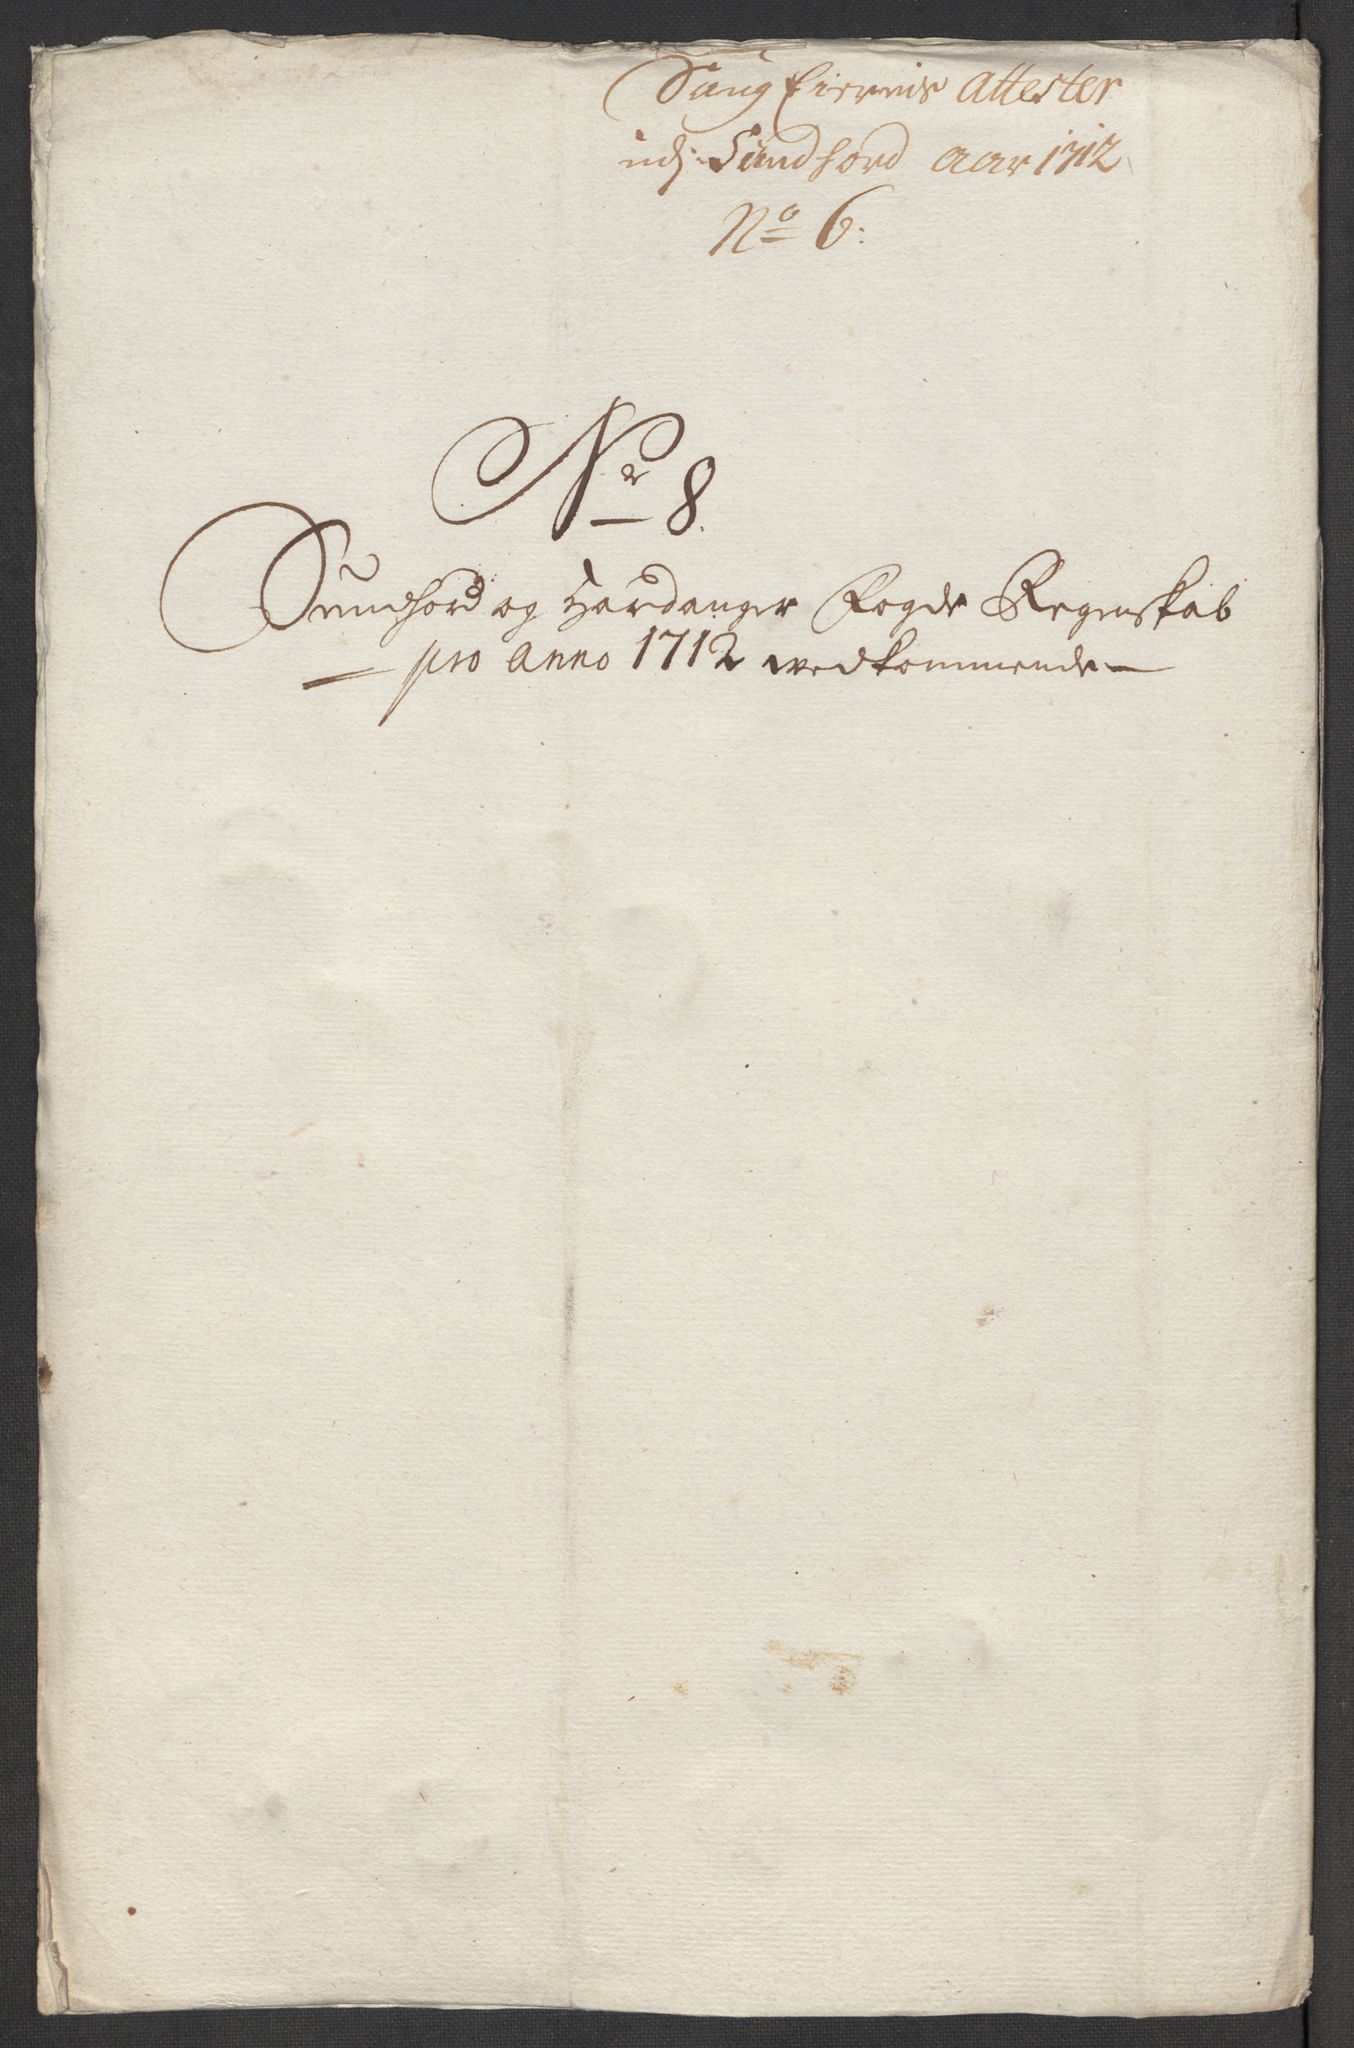 Saug Eiernis Attester
udj Sundhord aar 1712
No 6:
Nr 8.
Sundhord og Hardanger Fogde Regenskab
pro Anno 1712 vedkommende